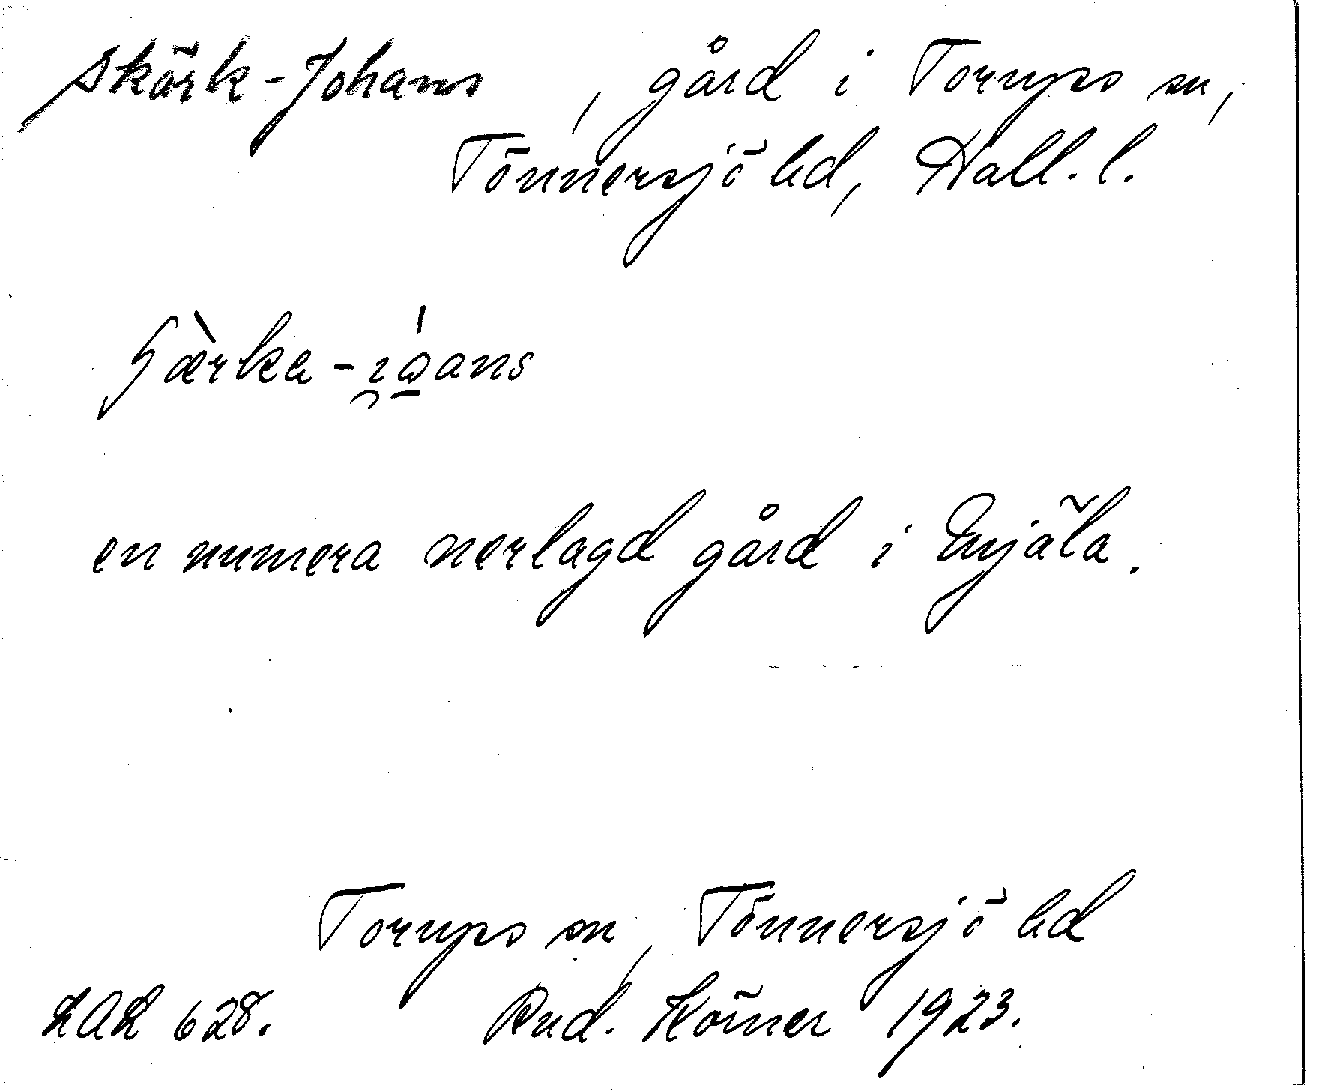 Skörk-Johans, gård i Torups sn,
Tönnersjö hd, Hall. l.
en numera nerlagd gård i Mjäla.
Torups sn, Tönnersjö hd
LAL 628. Rud. Körner 1923.